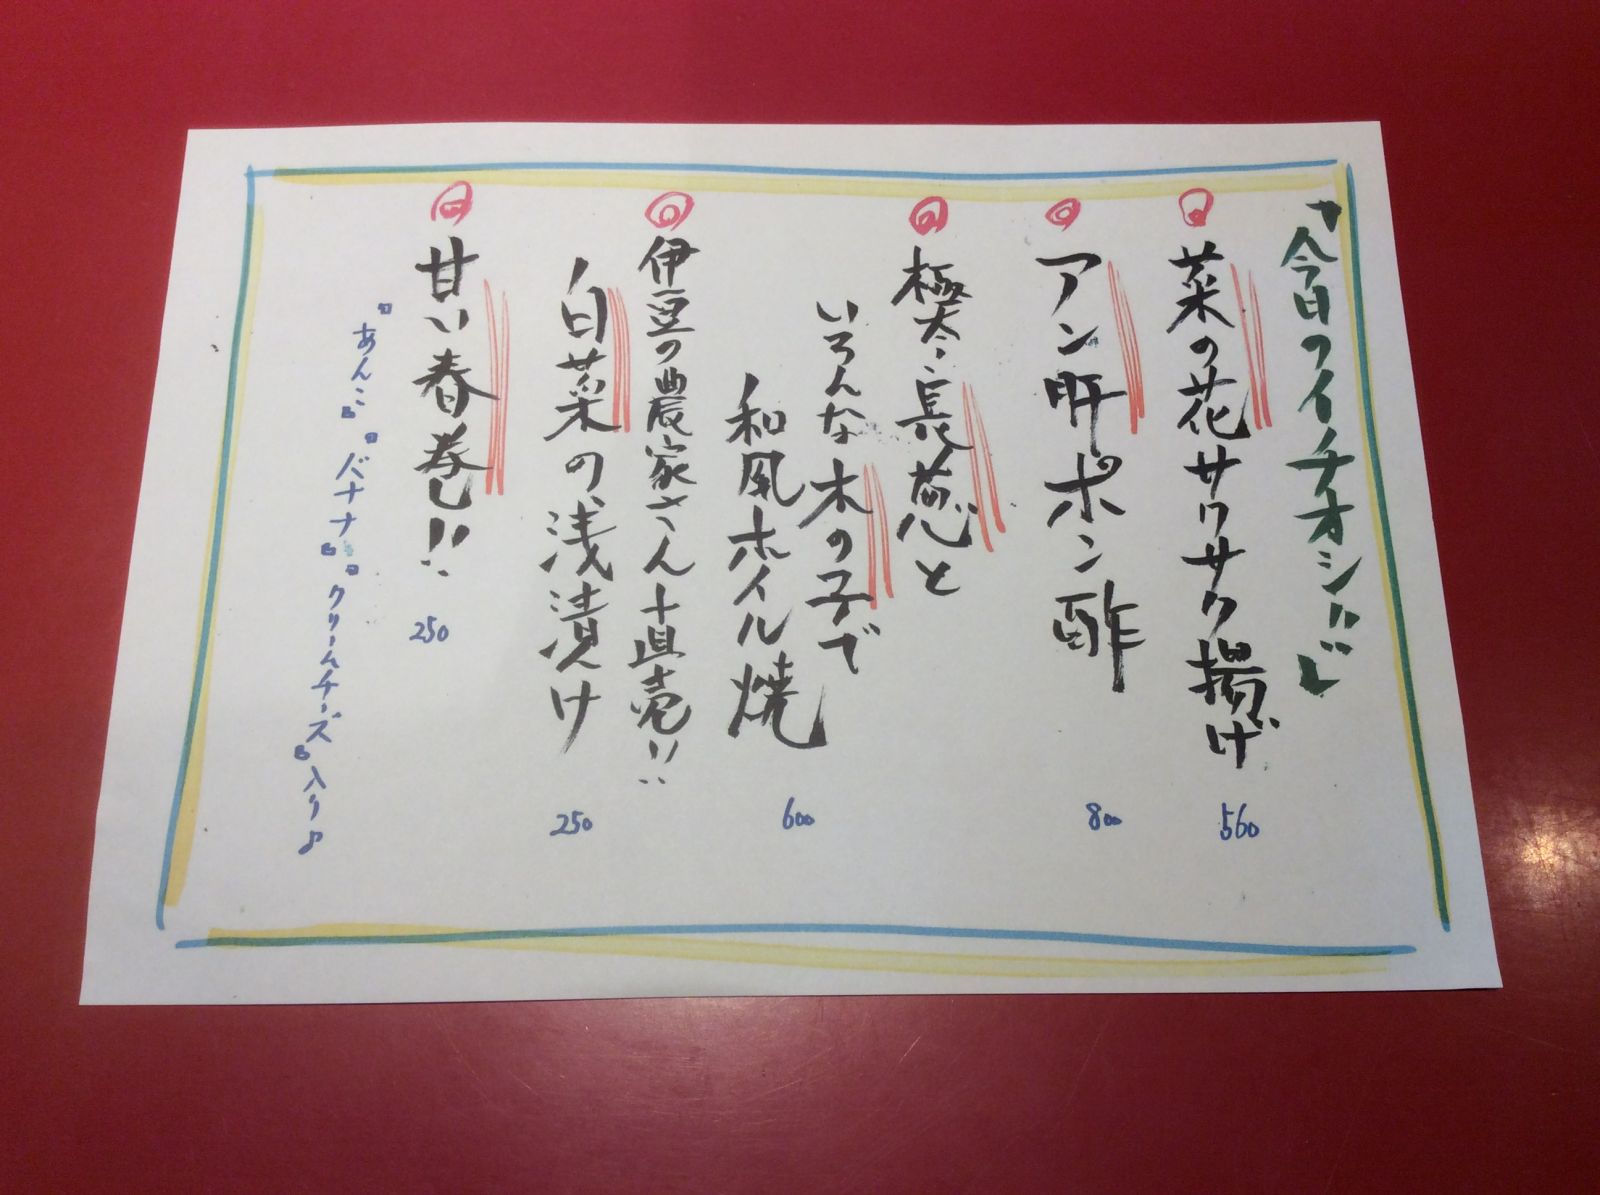 「今日のイチオシ!!」
菜の花サクサク揚げ
560
アン肝ポン酢
800
極太、長葱と
いろんな木の子で
和風ホイル焼
600
伊豆の農家さん直売!!
白菜の浅漬け
250
甘い春巻し!!
250
『あんこ』『バナナ』『クリームチーズ』入り♪